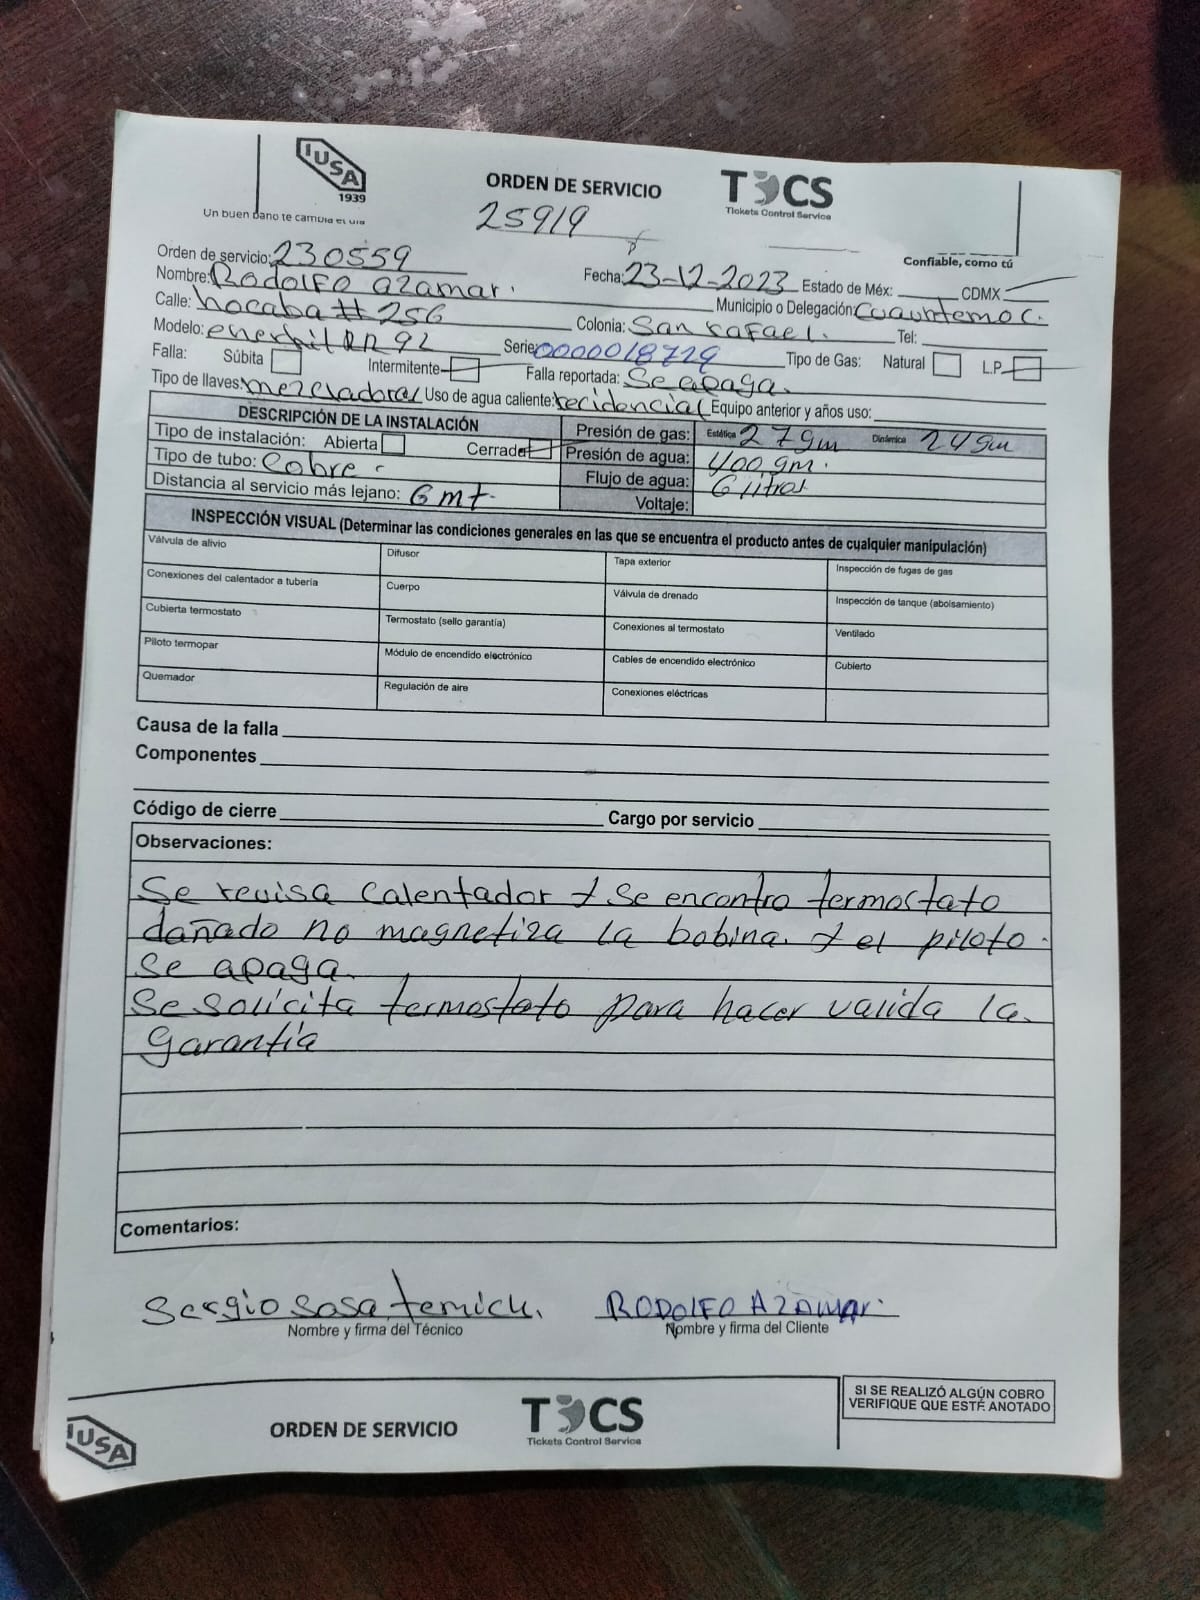 IUSA
1939
Un buen baño te cambia el día
ORDEN DE SERVICIO
25919
TCS
Tickets Control Service
Confiable, como tú
Orden de servicio: 230559
Fecha: 23-12-2023 Estado de Méx: CDMX
Nombre: Rodolfo azamar.
Municipio o Delegación: Cuauhtemoc.
Calle: hocaba # 256 Colonia: San rafael. Tel:
Modelo: RR 92 Serie: 0000018729 Tipo de Gas: Natural L.P.
Falla: Súbita Intermitente Falla reportada: Se apaga.
Tipo de llaves: mezcladora Uso de agua caliente: recidencial Equipo anterior y años uso:
DESCRIPCIÓN DE LA INSTALACIÓN
Presión de gas: Estática 27 gm Dinámica 24 gm
Tipo de instalación: Abierta Cerrada Presión de agua: 400 gm.
Tipo de tubo: Cobre Flujo de agua: 6 litros
Distancia al servicio más lejano: 6 mt. Voltaje:
INSPECCIÓN VISUAL (Determinar las condiciones generales en las que se encuentra el producto antes de cualquier manipulación)
Válvula de alivio Difusor Tapa exterior Inspección de fugas de gas
Conexiones del calentador a tubería Cuerpo Válvula de drenado Inspección de tanque (abolsamiento)
Cubierta termostato Termostato (sello garantía) Conexiones al termostato Ventilado
Piloto termopar Módulo de encendido electrónico Cables de encendido electrónico Cubierto
Quemador Regulación de aire Conexiones eléctricas
Causa de la falla
Componentes
Código de cierre Cargo por servicio
Observaciones:
Se revisa calentador y se encontro termostato
dañado no magnetiza la bobina. y el piloto.
se apaga.
Se solicita termostato para hacer valida la.
garantía
Comentarios:
Sergio Sosa temich. RODOLFO AZAMAR.
Nombre y firma del Técnico Nombre y firma del Cliente
IUSA
ORDEN DE SERVICIO
TCS
Tickets Control Service
SI SE REALIZÓ ALGÚN COBRO
VERIFIQUE QUE ESTÉ ANOTADO